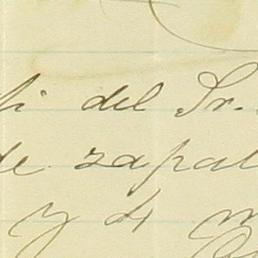 del Sr.
de zapat
y 4 m